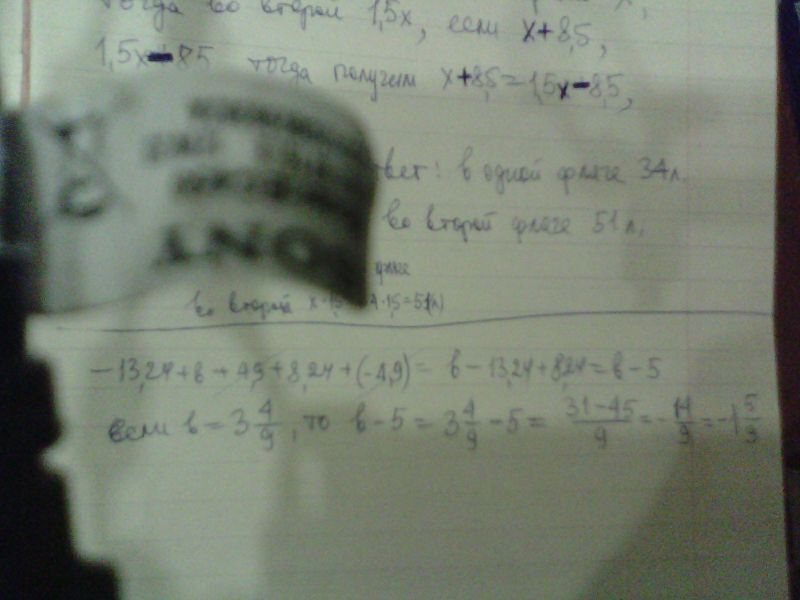 тогда во второй 1,5x, если x+8,5,
1,5x-8,5 тогда получем x+8,5=1,5x-8,5,
ONT
твет: в одной фляге 34л.
во второй фляге 51л.
фляге
во второй x·1,5 4·1,5=51(л)
-13,24+в+4,9+8,24+(-4,9)= в-13,24+8,24=в-5
если в=3 4/9, то в-5=3 4/9-5= 31-45/9=-14/9=-1 5/9